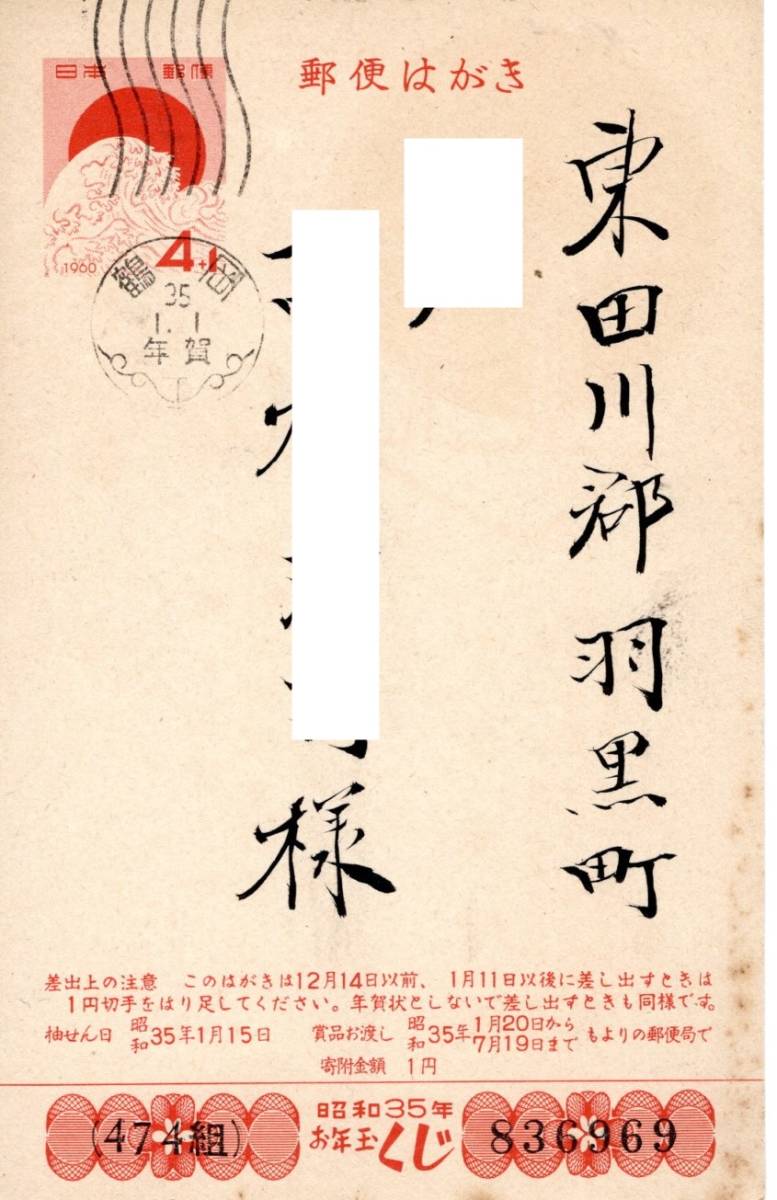 日本 郵便
郵便はがき
1960
4+1
鶴岡
35
1.1
年賀
東田川郡羽黒町
様
差出上の注意 このはがきは12月14日以前、1月11日以後に差し出すときは
1円切手をはり足してください。年賀状としないで差し出すときも同様です。
抽せん日 昭和35年1月15日 賞品お渡し 昭和35年1月20日から7月19日まで もよりの郵便局で
寄附金額 1円
昭和35年
お年玉くじ
(474組) 836969